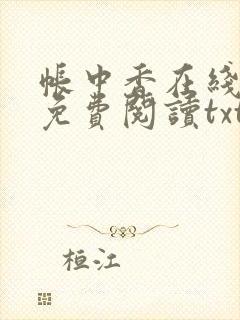 帳中香在綫
免費閱讀txt
桓江